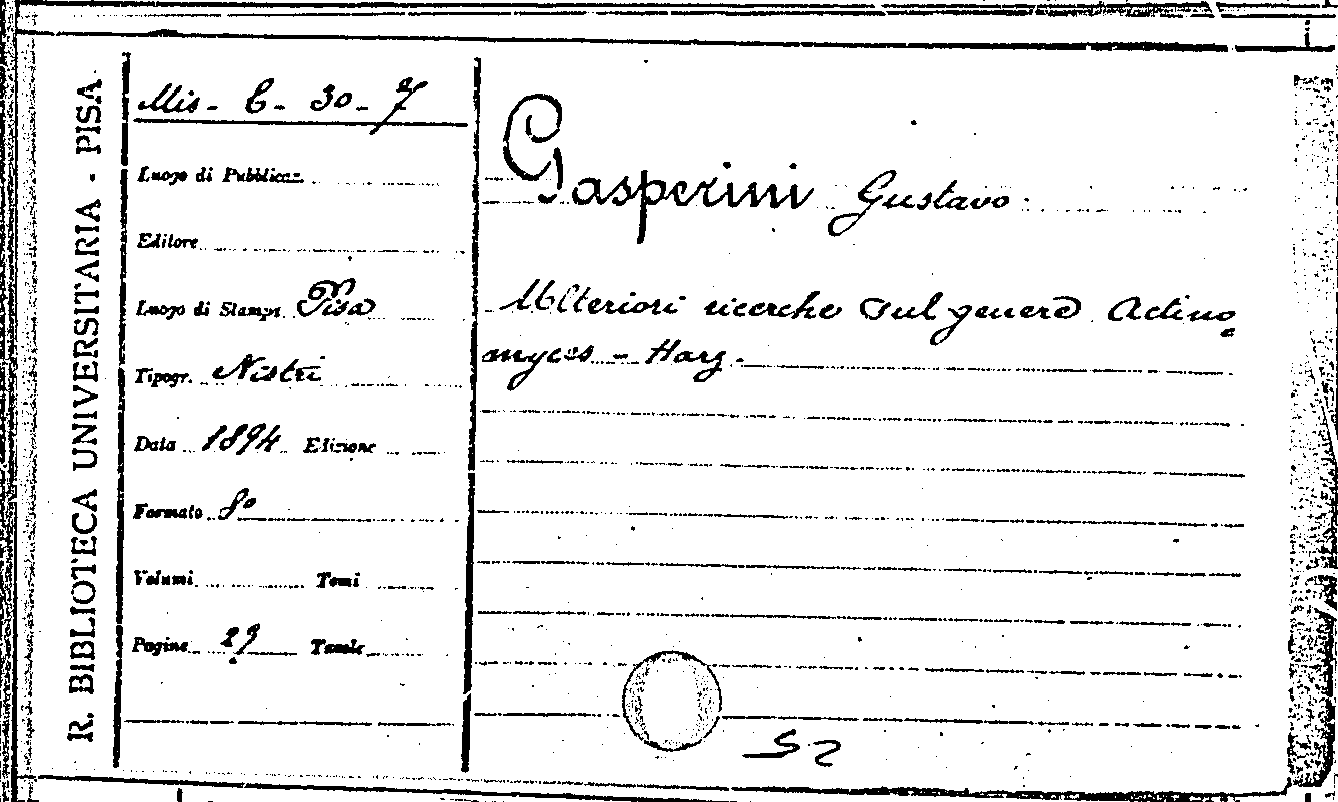 R. BIBLIOTECA UNIVERSITARIA - PISA
Mis - C - 30 - 7
Luogo di Pubblicaz.
Editore
Luogo di Stampa Pisa
Tipogr. Nistri
Data 1894 Edizione
Formato 8°
Volumi Tomi
Pagine 29 Tavole
Gasperini Gustavo
Ulteriori ricerche sul genere Actino
myces - Harz.
52